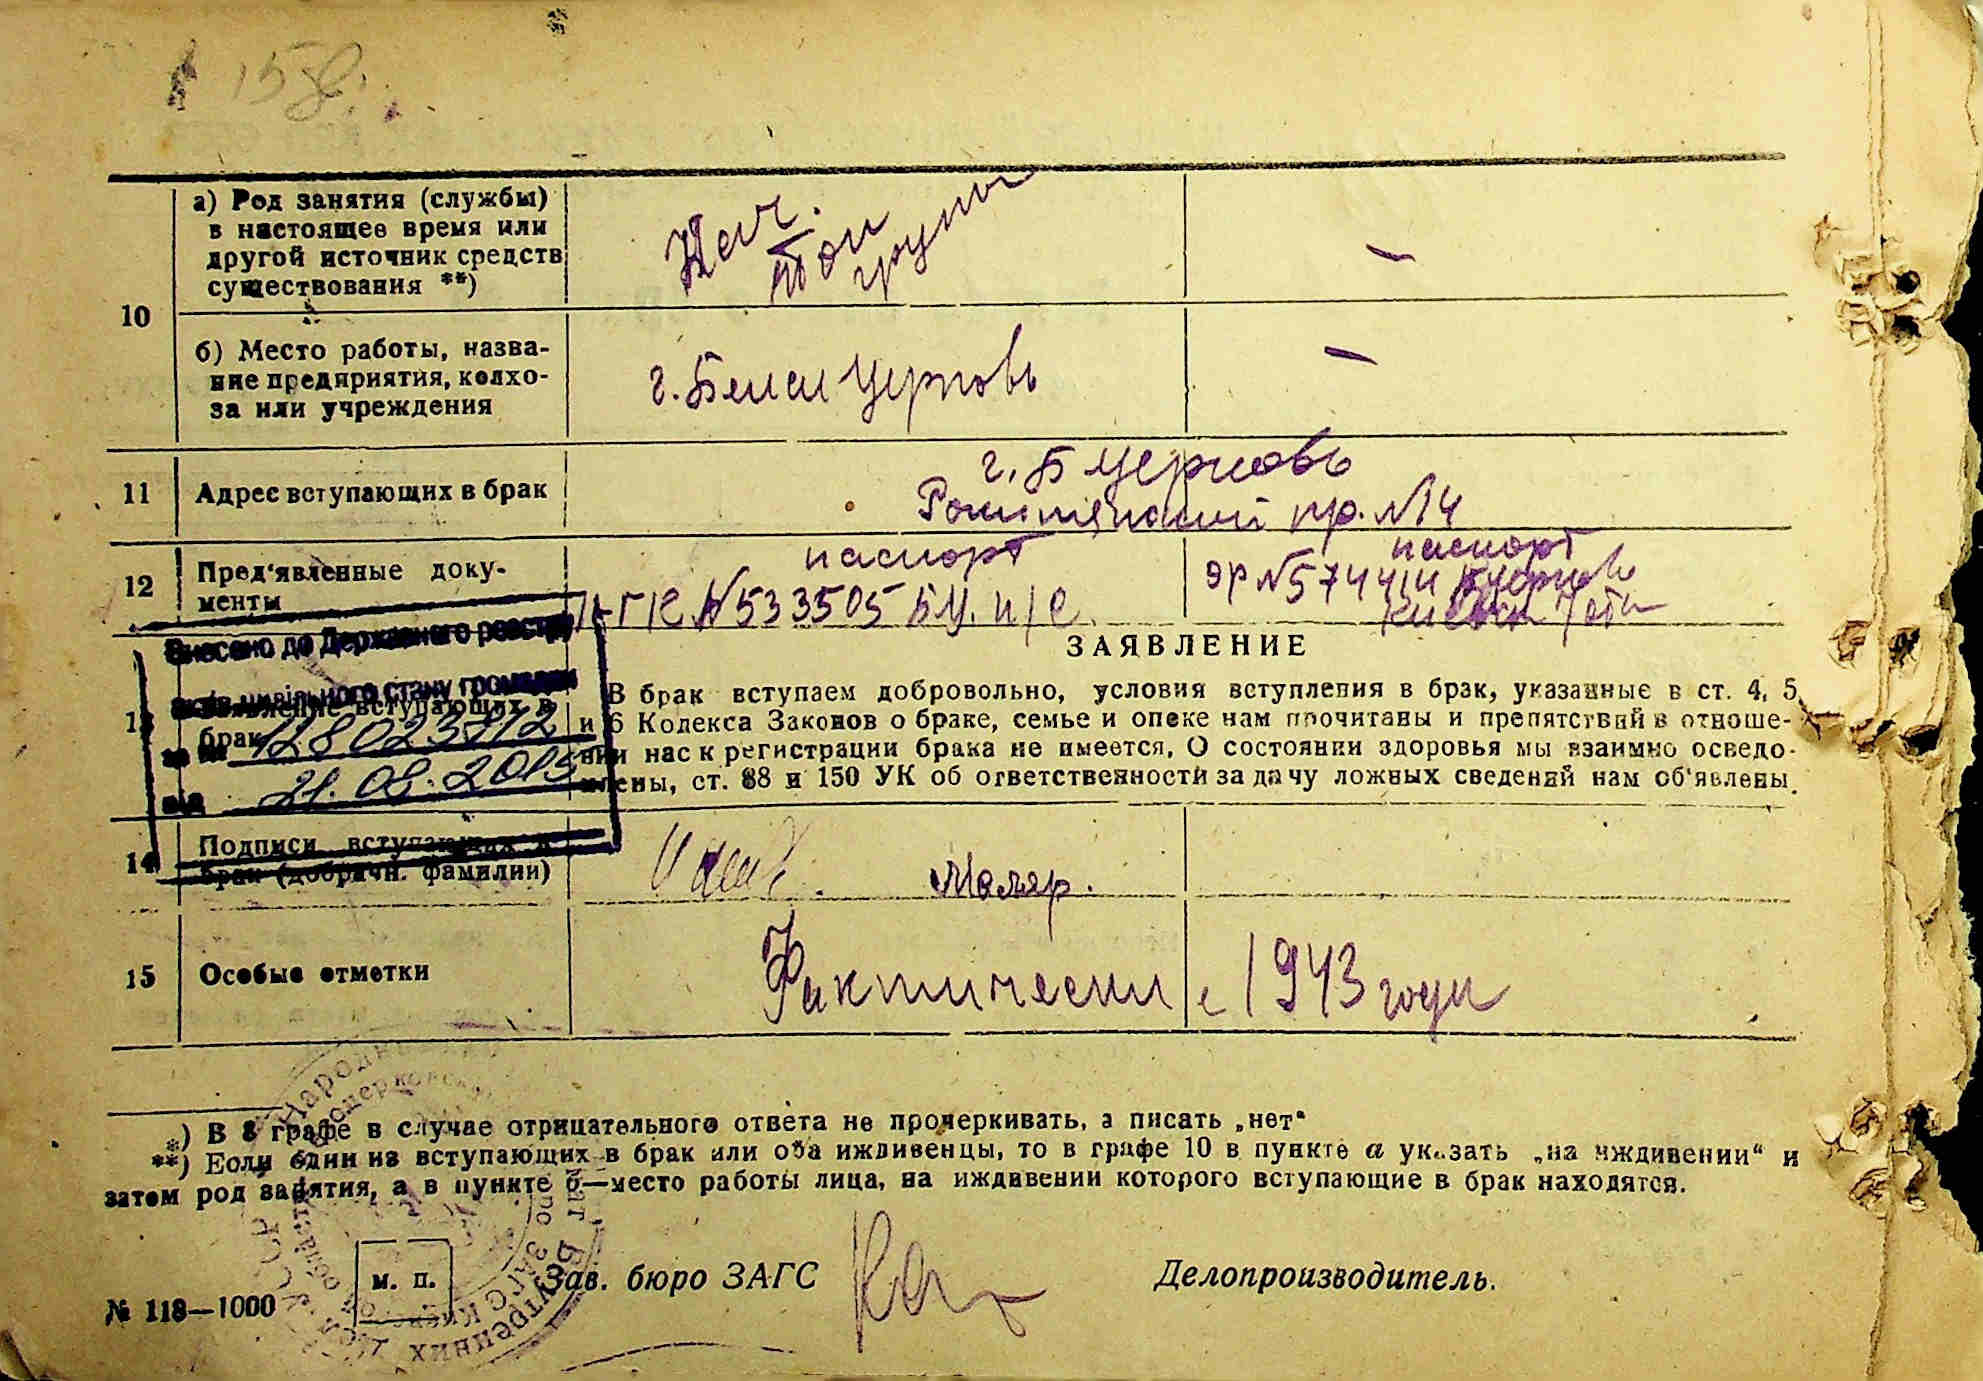 158
10
а) Род занятия (службы)
в настоящее время или
другой источник средств
существования **)
Нач.
топ
групы
—
б) Место работы, назва-
ние предприятия, колхо-
за или учреждения
г. Белая Церковь
—
11
Адрес вступающих в брак
г. Б Церковь
пр. №14
12
Пред'явленные доку-
менты
паспорт
№533505 БЦ.
паспорт
ЭР №574414
Внесено до Державного реєстру
актів цивільного стану громадян
за № 128023812
від 21.08.2015
13
Заявление вступающих в
брак
ЗАЯВЛЕНИЕ
В брак вступаем добровольно, условия вступления в брак, указанные в ст. 4, 5
и 6 Кодекса Законов о браке, семье и опеке нам прочитаны и препятствий в отноше-
нии нас к регистрации брака не имеется, О состоянии здоровья мы взаимно осведо-
млены, ст. 88 и 150 УК об ответственности за дачу ложных сведений нам об'явлены.
14
Подписи вступающих в
брак (добрачн. фамилии)
Маляр.
15
Особые отметки
Фактически с 1943 года
*) В 8 графе в случае отрицательного ответа не прочеркивать, а писать „нет"
**) Если один из вступающих в брак или оба иждивенцы, то в графе 10 в пункте а указать „на иждивении" и
затем род занятия, а в пункте б—место работы лица, на иждивении которого вступающие в брак находятся.
м. п.
Зав. бюро ЗАГС
Делопроизводитель.
№ 118—1000